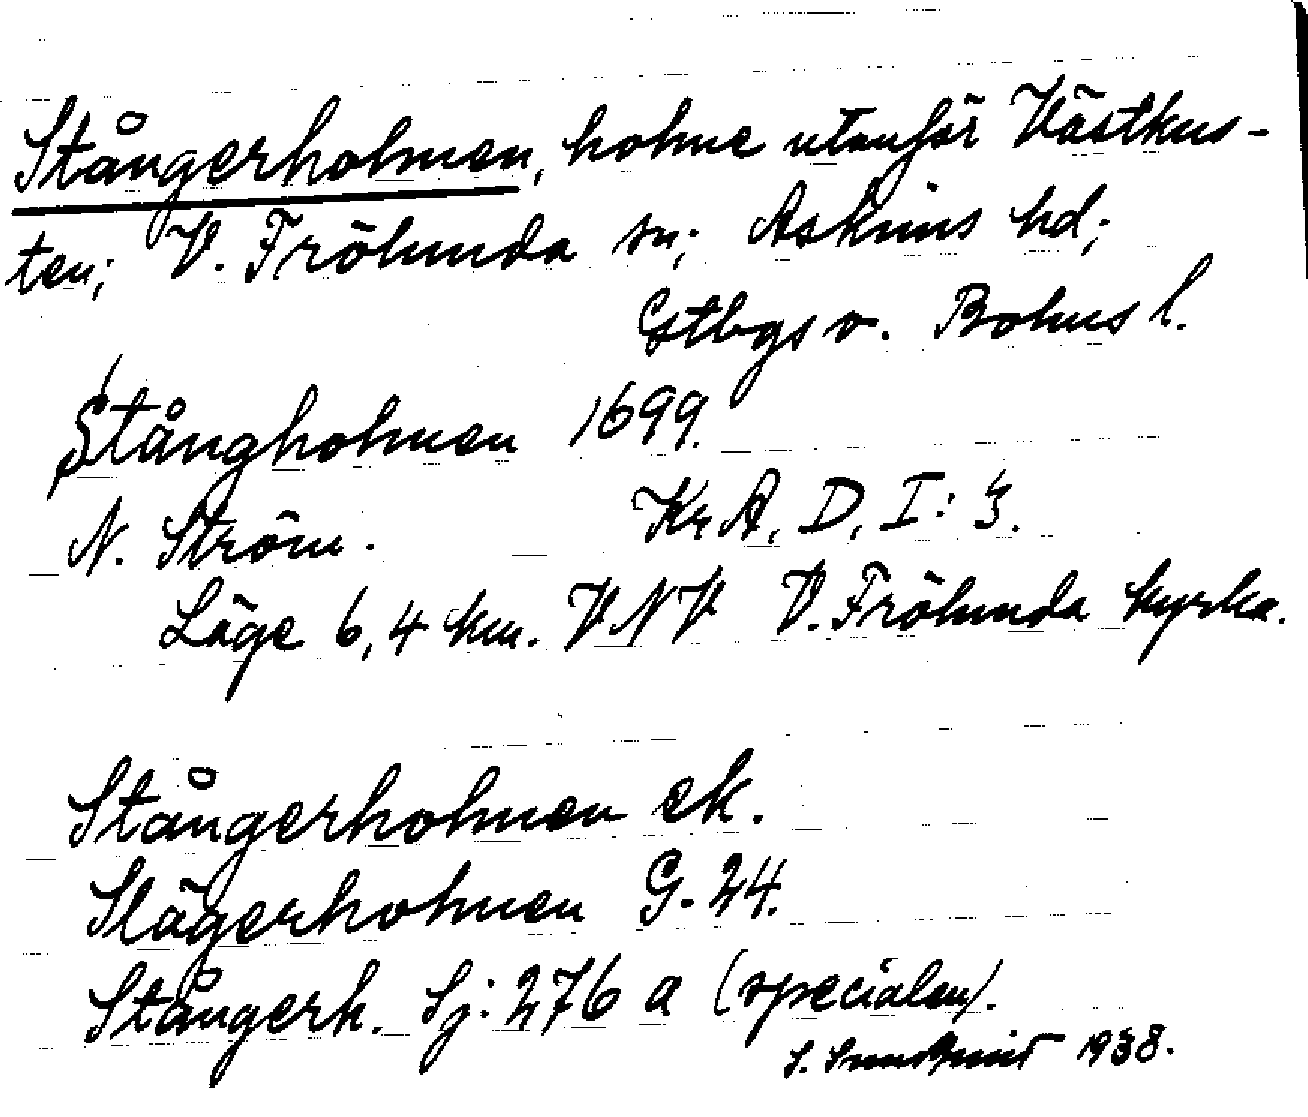 Stångerholmen, holme utanför Västkus-
ten; V. Frölunda sn; Askims hd;
Gtbgs o. Bohus l.
Stångholmen 1699.
N. Ström. KrA, D, I: 3.
Läge 6,4 km. VNV V. Frölunda kyrka.
Stångerholmen ek.
Slägerholmen G. 24.
Stångerh. Sj: 276 a (specialen).
S. Sundkvist 1938.